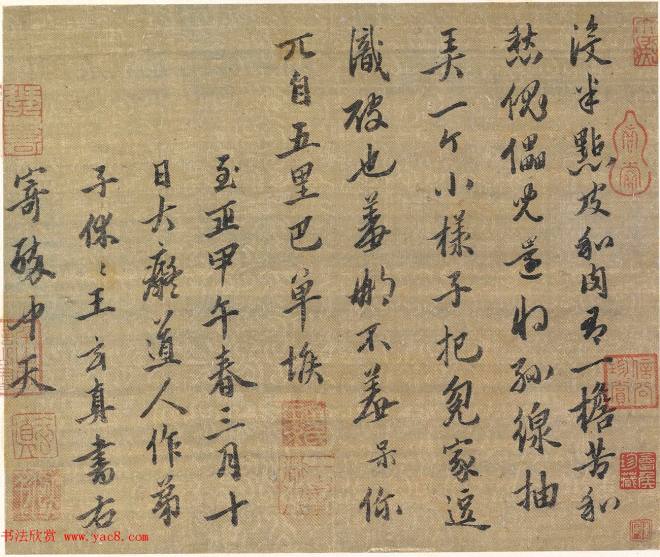 没半點皮和肉有一擔苦和
愁傀儡兒還將絲線抽
弄一个小樣子把冤家逗
識破也羞那不羞呆你
兀自五里巴单堠
至正甲午春三月十
日大癡道人作弟
子休々王玄真書右
寄醉中天
书法欣赏 www.yac8.com